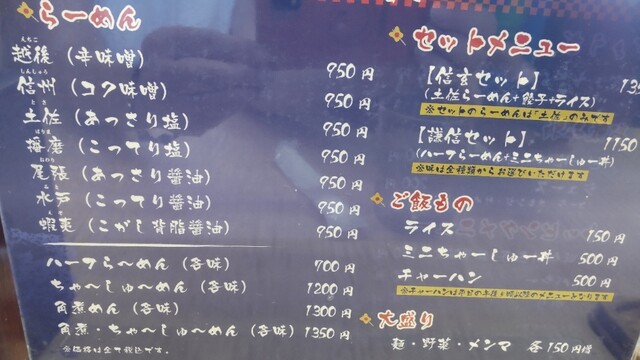 らーめん
えちご
越後（辛味噌） 950円
しんしゅう
信州（コク味噌） 950円
とさ
土佐（あっさり塩） 950円
はりま
播磨（こってり塩） 950円
おわり
尾張（あっさり醤油） 950円
みと
水戸（こってり醤油） 950円
えぞ
蝦夷（こがし背脂醤油） 950円
ハーフらーめん（各味） 700円
ちゃーしゅーめん（各味） 1200円
角煮めん（各味） 1300円
角煮・ちゃーしゅーめん（各味） 1350円
※価格は全て税込です。
セットメニュー
【信玄セット】 135
（土佐らーめん+餃子+ライス）
※セットのらーめんは「土佐」のみです
【謙信セット】 1150
（ハーフらーめん+ミニちゃーしゅー丼）
※味は全種類からお選びいただけます
ご飯もの
ライス 150円
ミニちゃーしゅー丼 500円
チャーハン 500円
※チャーハンは
大盛り
麺・野菜・メンマ 各150円増